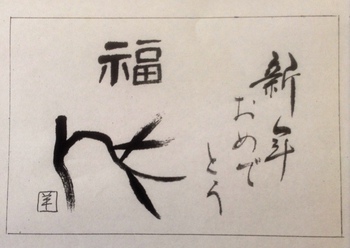 新年
おめで
とう
福
羊